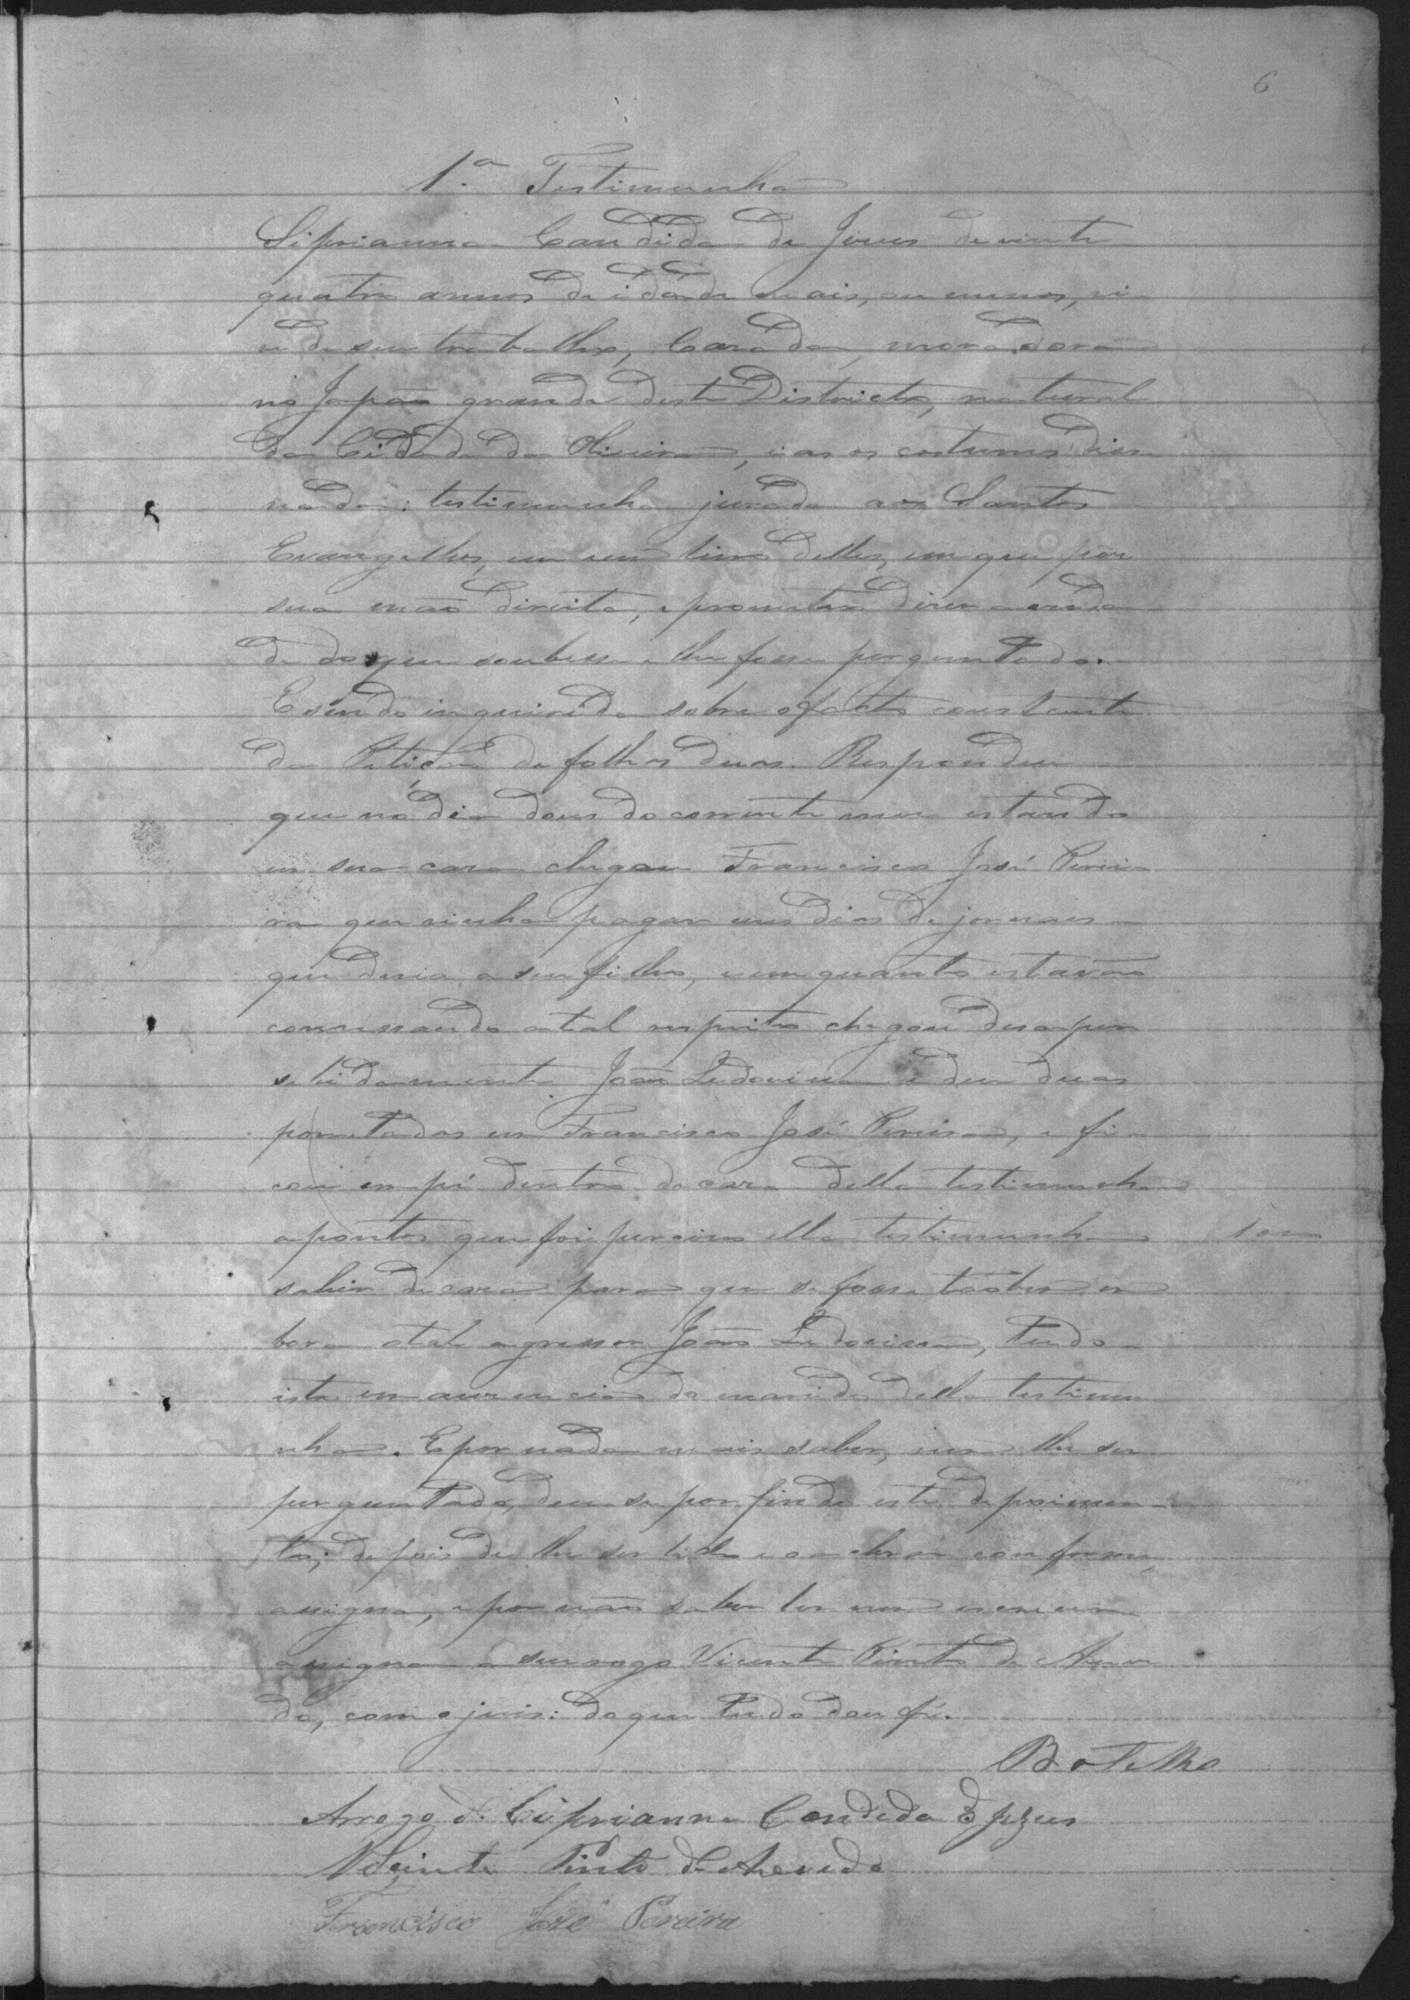 6
1.ª Testimunha
Siprianna Candida de Jesus de vinte
quatro annos de idade mais, ou menos, vi-
ve de seu trabalho, Casada, moradora
no Japão grande deste Districto, natural
da Cidade da Oliveira, e aos os costumes disse
nada: testimunha jurada aos Santos
Evangelhos, em um livro delles, em que pôs
sua mão direita, e prometeu dizer a verda
de do que soubesse e lhe fosse perguntado.
E sendo inquirida sobre o facto constante
da Petição de folhas duas. Respondeu
que no dia dous do corrente mez estando
em sua casa chegou Francisco José Perei-
ra que vinha pagar uns dias de jornaes
que devia a seu filho, e em quanto estavão
conversando a tal respeito chegou desaper
sebidamente João Ludovino e deu duas
porretadas em Francisco José Pereira, e fi-
cou em pé dentro da casa della testimunha
a ponto que foi perciso ella testimunha
sahir de casa para que se fosse tãobem em
bora o tal agressor João Ludovino, tudo
isto em auzencia do marido della testimu
nha. E por nada mais saber, nem lhe ser
perguntado, deu-se por findo este depoimen-
to; depois de lhe ser lido e o achar conforme,
assigna, e por não saber ler nem escrever
assigna a seu rogo Vicente Pinto de Azeve
do, com o juis: do que tudo dou fé.
Botelho
Arrogo d. Ciprianna Candida
Visinte Pinto de Azevedo
Francisco José Pereira